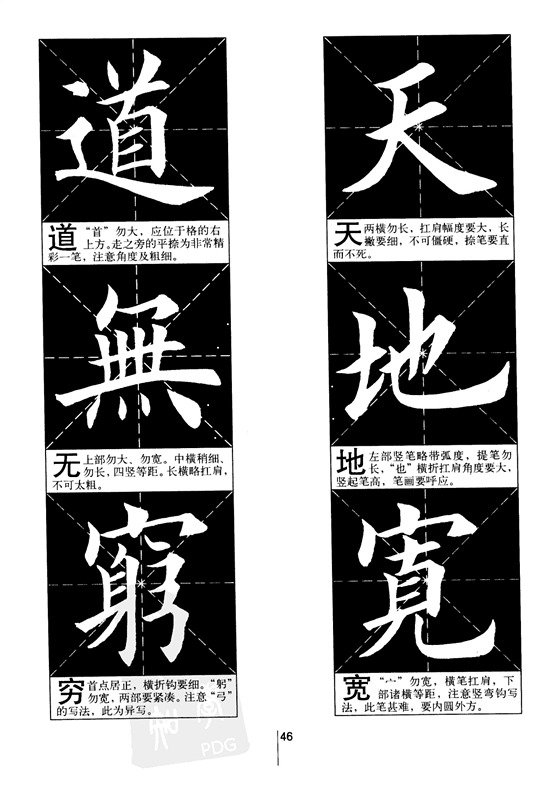 天
天 两横勿长，扛肩幅度要大，长
撇要细，不可僵硬，捺笔要直
而不死。
地
地 左部竖笔略带弧度，提笔勿
长，“也”横折扛肩角度要大，
竖起笔高，笔画要呼应。
寬
宽 “宀”勿宽，横笔扛肩，下
部诸横等距，注意竖弯钩写
法，此笔甚难，要内圆外方。
道
道 “首”勿大，应位于格的右
上方。走之旁的平捺为非常精
彩一笔，注意角度及粗细。
無
无 上部勿大、勿宽。中横稍细、
勿长，四竖等距。长横略扛肩，
不可太粗。
窮
穷 首点居正，横折钩要细。“躬”
勿宽，两部要紧凑。注意“弓”
的写法，此为异写。
PDG
46